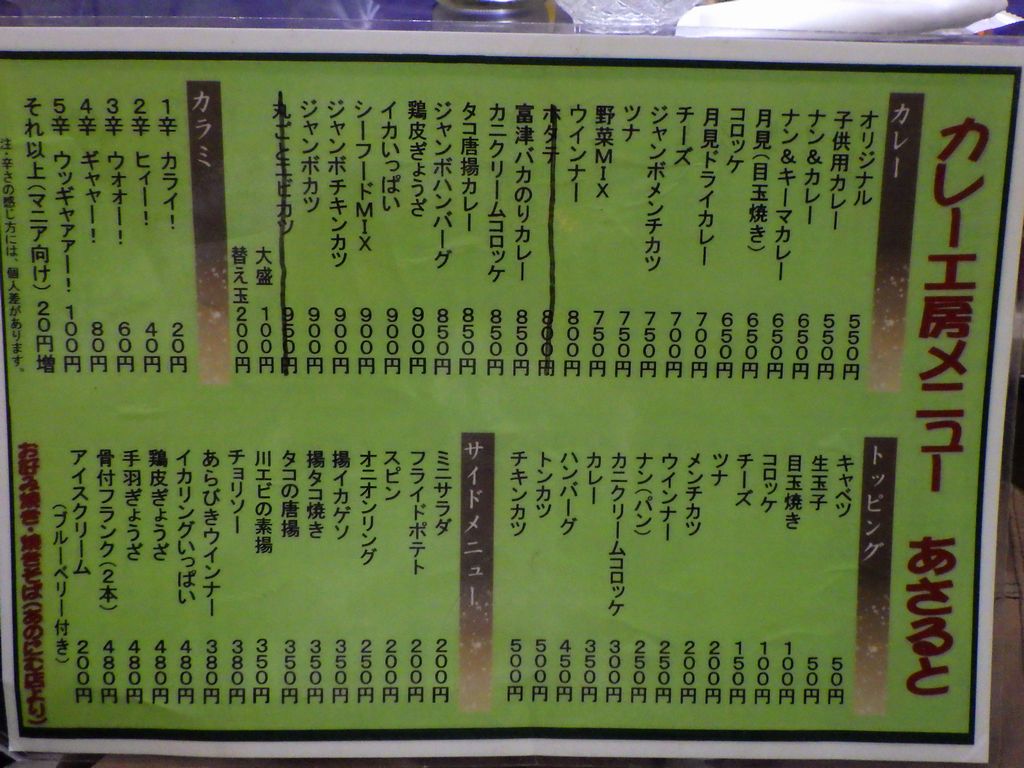 カレー工房メニュー　あさると
カレー
オリジナル 550円
子供用カレー 550円
ナン＆カレー 650円
ナン＆キーマカレー 650円
月見（目玉焼き） 650円
コロッケ 650円
月見ドライカレー 700円
チーズ 700円
ジャンボメンチカツ 750円
ツナ 750円
野菜ＭＩＸ 750円
ウインナー 800円
ホタテ 800円
富津バカのりカレー 850円
カニクリームコロッケ 850円
タコ唐揚カレー 850円
ジャンボハンバーグ 850円
鶏皮ぎょうざ 900円
イカいっぱい 900円
シーフードＭＩＸ 900円
ジャンボチキンカツ 900円
ジャンボカツ 900円
丸ごとエビカツ 950円
大盛 100円
替え玉 200円
カラミ
1辛 カライ！ 20円
2辛 ヒィー！ 40円
3辛 ウオォー！！ 60円
4辛 ギャャー！！ 80円
5辛 ウッギャァアー！！ 100円
それ以上（マニア向け） 20円増
注・辛さの感じ方には、個人差があります。
トッピング
キャベツ 50円
生玉子 50円
目玉焼き 100円
コロッケ 100円
チーズ 150円
ツナ 200円
メンチカツ 200円
ウインナー 250円
ナン（パン） 250円
カニクリームコロッケ 300円
カレー 350円
ハンバーグ 450円
トンカツ 500円
チキンカツ 500円
サイドメニュー
ミニサラダ 200円
フライドポテト 200円
スピン 200円
オニオンリング 250円
揚イカゲソ 350円
揚タコ焼き 350円
タコの唐揚 350円
川エビの素揚 350円
チョリソー 380円
あらびきウインナー 380円
イカリングいっぱい 480円
鶏皮ぎょうざ 480円
手羽ぎょうざ 480円
骨付フランク（2本） 480円
アイスクリーム 200円
（ブルーベリー付き）